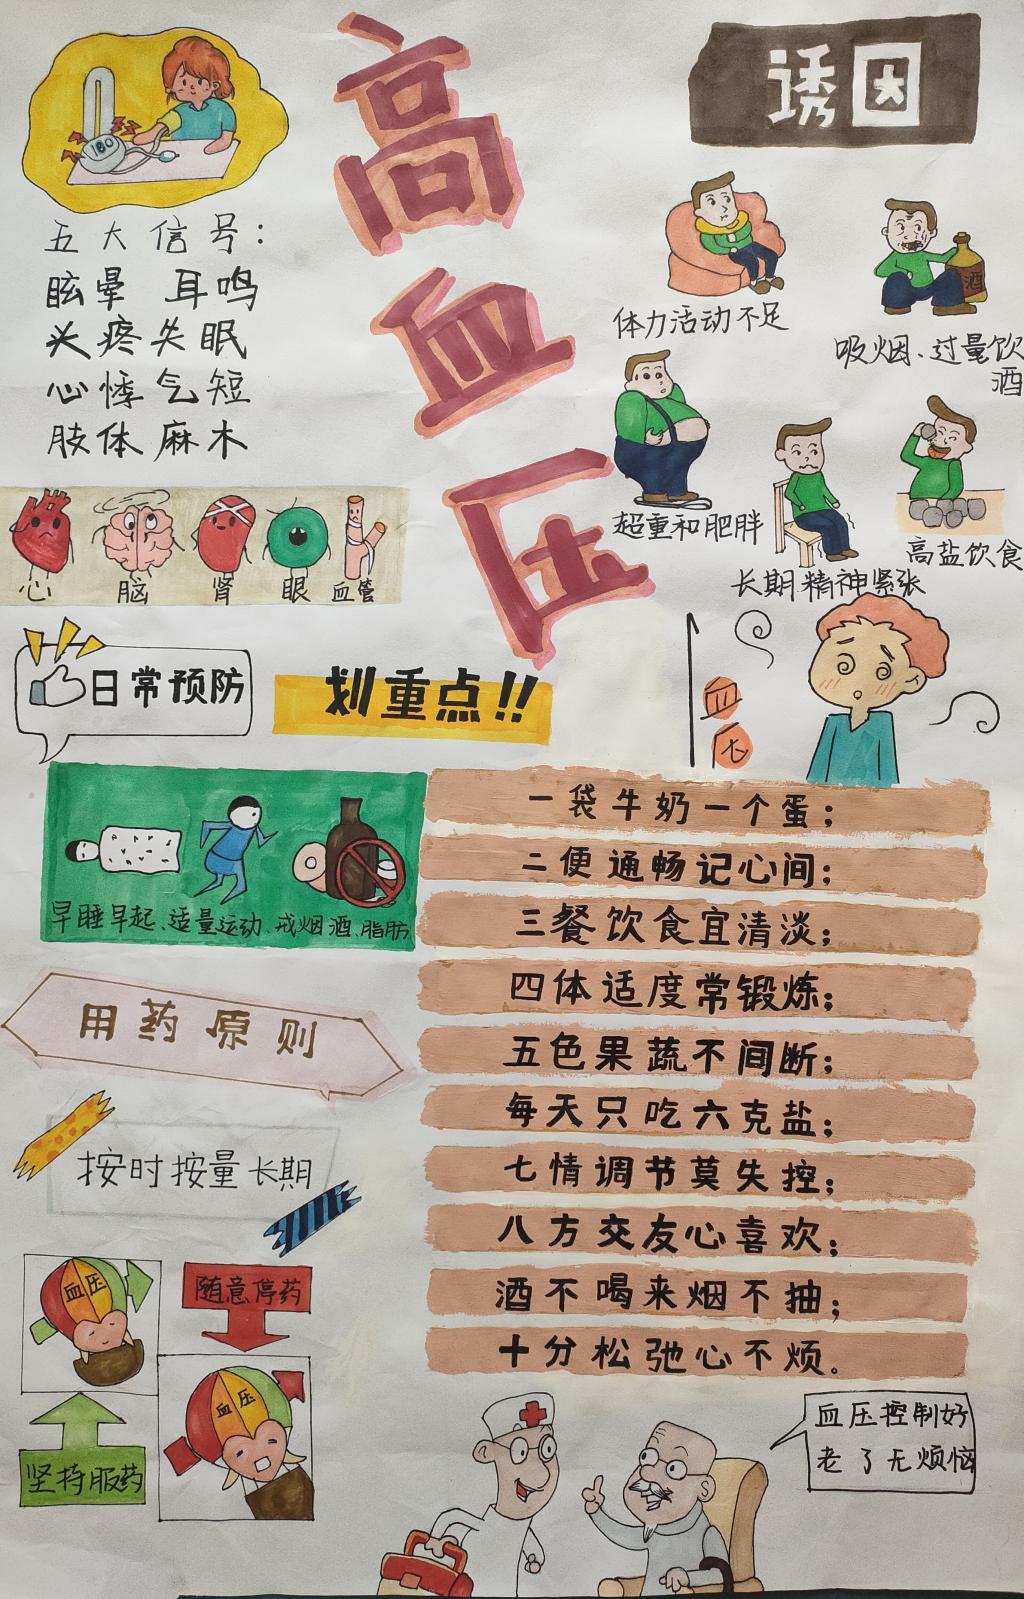 高血压
诱因
五大信号：
眩晕 耳鸣
头疼失眠
心悸气短
肢体麻木
体力活动不足
酒
吸烟、过量饮
酒
超重和肥胖
长期精神紧张
高盐饮食
心 脑 肾 眼 血管
日常预防
划重点!!
血
压
早睡早起、适量运动、戒烟酒、脂肪
一袋牛奶一个蛋；
二便通畅记心间；
三餐饮食宜清淡；
四体适度常锻炼；
五色果蔬不间断；
每天只吃六克盐；
七情调节莫失控；
八方交友心喜欢；
酒不喝来烟不抽；
十分松弛心不烦。
用药原则
按时按量长期
血压
随意停药
血压
坚持服药
血压控制好
老了无烦恼